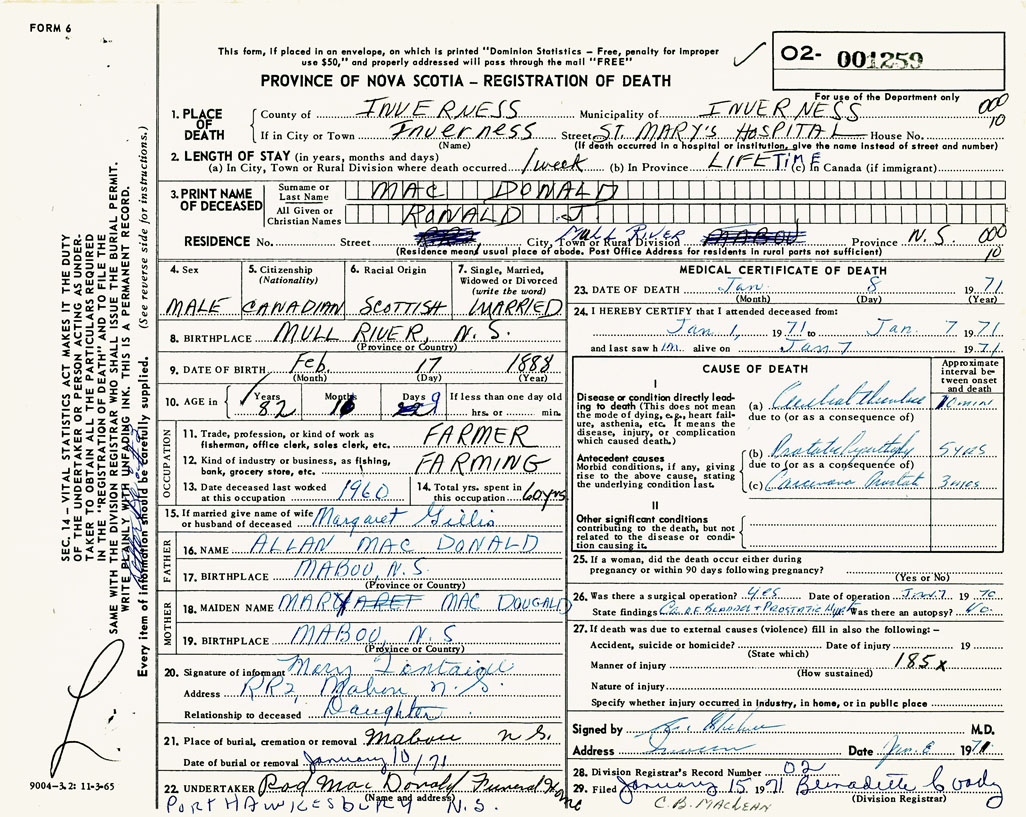 FORM 6
This form, if placed in an envelope, on which is printed "Dominion Statistics – Free, penalty for improper
use $50," and properly addressed will pass through the mail "FREE"
PROVINCE OF NOVA SCOTIA – REGISTRATION OF DEATH
O2- 001259
For use of the Department only
000
10
1. PLACE OF DEATH
County of INVERNESS Municipality of INVERNESS
If in City or Town Inverness Street ST. MARY'S HOSPITAL House No.
(Name) (If death occurred in a hospital or institution, give the name instead of street and number)
2. LENGTH OF STAY (in years, months and days)
(a) In City, Town or Rural Division where death occurred 1 week (b) In Province LIFETIME (c) In Canada (if immigrant)
3. PRINT NAME OF DECEASED
Surname or Last Name MAC DONALD
All Given or Christian Names RONALD J
RESIDENCE No. Street City, Town or Rural Division Mull River Province N.S. 000
(Residence means usual place of abode. Post Office Address for residents in rural parts not sufficient) 10
4. Sex MALE
5. Citizenship (Nationality) CANADIAN
6. Racial Origin SCOTTISH
7. Single, Married, Widowed or Divorced (write the word) MARRIED
8. BIRTHPLACE MULL RIVER, N.S.
(Province or Country)
9. DATE OF BIRTH Feb. 17 1888
(Month) (Day) (Year)
10. AGE in Years 82 Months 10 Days If less than one day
hrs. or min.
OCCUPATION
11. Trade, profession or kind of work as
fisherman, office clerk, sales clerk, etc. FARMER
12. Kind of industry or business, as fishing,
bank, grocery store, etc. FARMING
13. Date deceased last worked
at this occupation 1960
14. Total yrs. spent in
this occupation 60 yrs
15. If married give name of wife
or husband of deceased Margaret Gillis
FATHER
16. NAME ALLAN MAC DONALD
17. BIRTHPLACE MABOU, N.S.
(Province or Country)
MOTHER
18. MAIDEN NAME MARY MAC DOUGALD
19. BIRTHPLACE MABOU, N.S
(Province or Country)
20. Signature of informant Mary
Address RR2, Mabou, N.S.
Relationship to deceased Daughter
21. Place of burial, cremation or removal Mabou N S.
Date of burial or removal January 10/71
22. UNDERTAKER Rod Mac Donald Funeral Home
(Name and address)
PORT HAWKESBURY N.S.
MEDICAL CERTIFICATE OF DEATH
23. DATE OF DEATH Jan 8 1971
(Month) (Day) (Year)
24. I HEREBY CERTIFY that I attended deceased from:
Jan 1, 1971 to Jan 7 1971
and last saw him alive on Jan 7 1971
CAUSE OF DEATH
Approximate interval between onset and death
I
Disease or condition directly leading to death (This does not mean the mode of dying, e.g., heart failure, asthenia, etc. It means the disease, injury, or complication which caused death.)
(a) Cerebral thrombus 10 min
due to (or as a consequence of)
Antecedent causes
Morbid conditions, if any, giving rise to the above cause, stating the underlying condition last.
(b) 5 yrs
due to (or as a consequence of)
(c) Carcinoma Prostate
II
Other significant conditions
contributing to the death, but not related to the disease or condition causing it.
25. If a woman, did the death occur either during
pregnancy or within 90 days following pregnancy?
(Yes or No)
26. Was there a surgical operation? yes Date of operation Jan. 7 1970
State findings Ca. of Bladder + Prostatic Was there an autopsy? No
27. If death was due to external causes (violence) fill in also the following: –
Accident, suicide or homicide? Date of injury 19
(State which)
Manner of injury 185x
(How sustained)
Nature of injury
Specify whether injury occurred in industry, in home, or in public place
Signed by M.D.
Address Date Jan. 8 1971
28. Division Registrar's Record Number 02
29. Filed January 15 1971 Bernadette
(Division Registrar)
C.B. MACLEAN
SEC. 14 – VITAL STATISTICS ACT MAKES IT THE DUTY
OF THE UNDERTAKER OR PERSON ACTING AS UNDER-
TAKER TO OBTAIN ALL THE PARTICULARS REQUIRED
IN THE "REGISTRATION OF DEATH" AND TO FILE THE
SAME WITH THE DIVISION REGISTRAR WHO SHALL ISSUE THE BURIAL PERMIT.
WRITE PLAINLY WITH UNFADING INK. THIS IS A PERMANENT RECORD.
Every item of information should be carefully supplied. (See reverse side for instructions.)
9004–3.2: 11-3-65